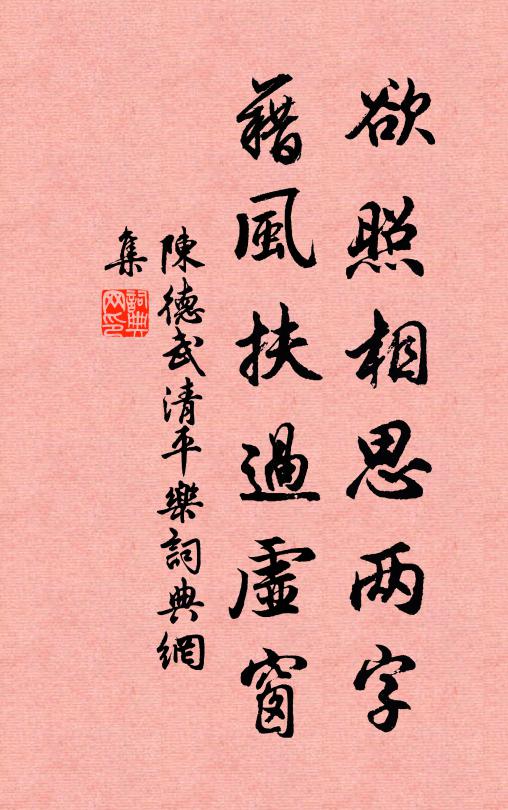 欲照相思两字
藉風扶過虛窗
陳德武清平樂詞典網
集
詞典网印